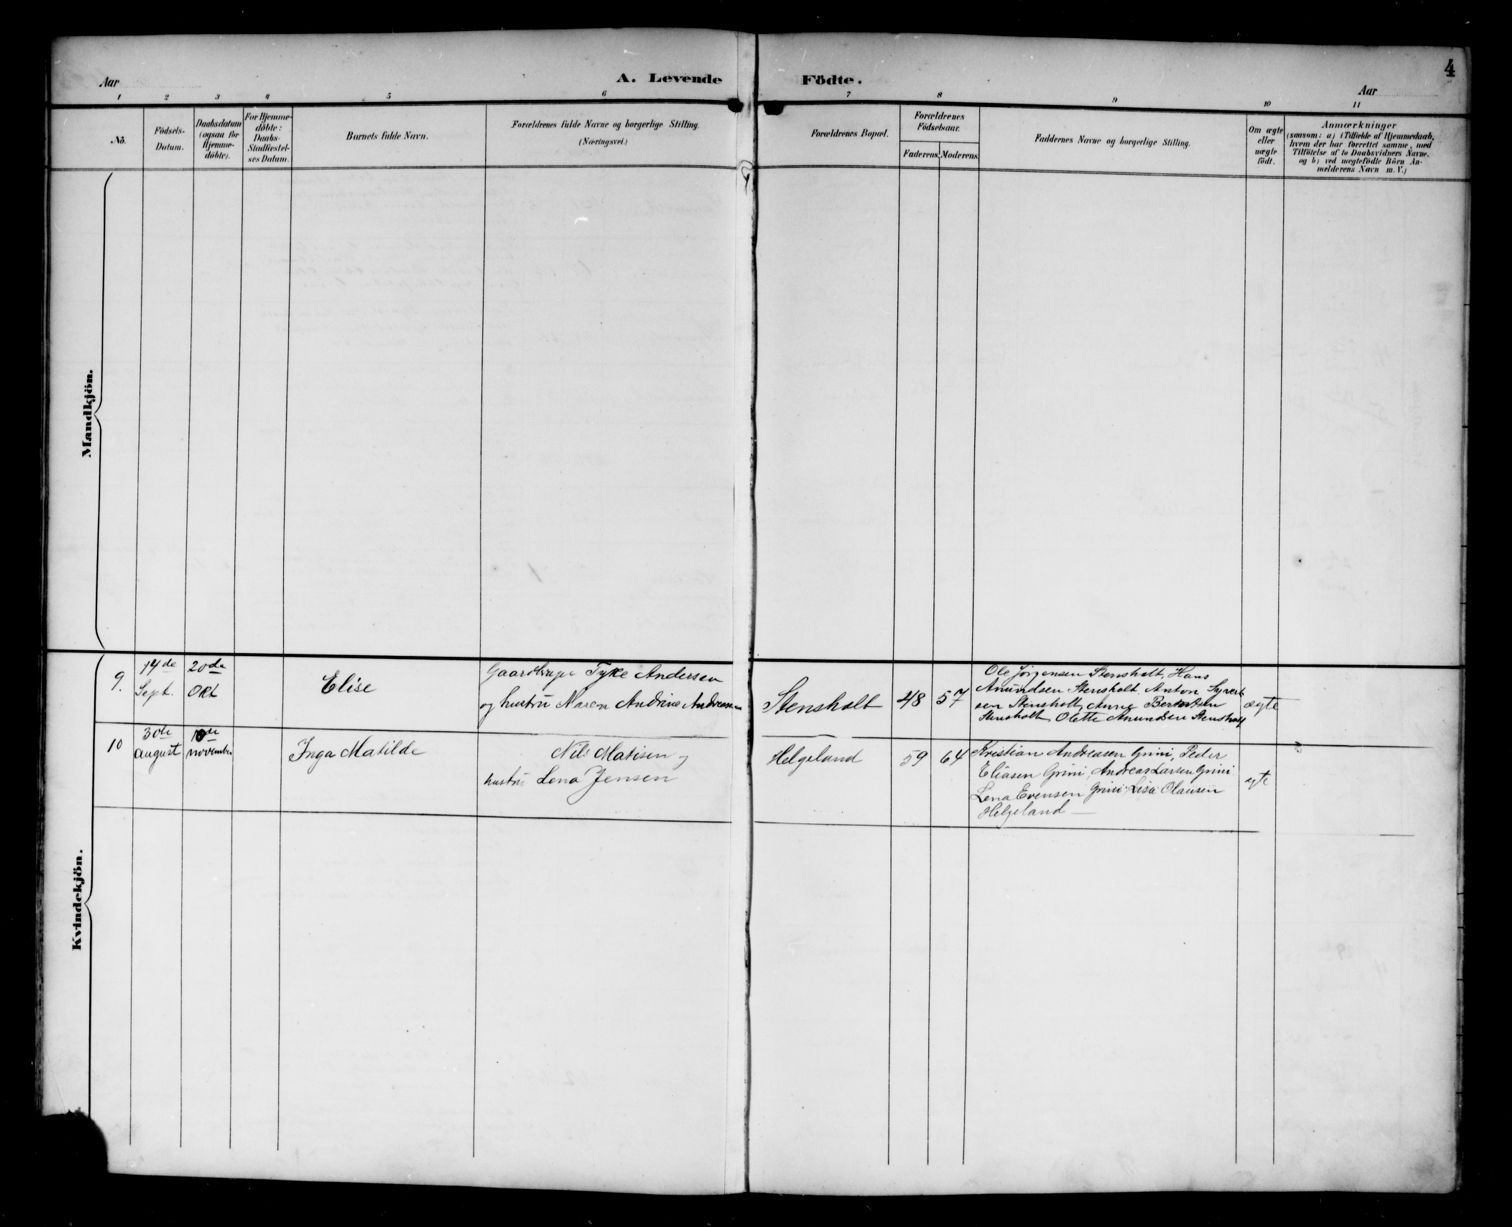 4
Aar
A. Levende Födte.
Aar
1 2 3 4 5 6 7 8 9 10 11
No.
Födsels-
Datum.
Daabsdatum
(ogsaa for
Hjemme-
döbte).
For Hjemme-
döbte:
Daabs-
Stadfæstel-
ses Datum.
Barnets fulde Navn.
Forældrenes fulde Navne og borgerlige Stilling.
(Næringsvei.)
Forældrenes Bopæl.
Forældrenes
Födselsaar.
Faderens. Moderens.
Faddernes Navne og borgerlige Stilling.
Om ægte
eller
uægte
födt.
Anmærkninger
(saasom: a) i Tilfælde af Hjemmedaab,
hvem der har forrettet samme, med
Tilföielse af to Daabsvidners Navne,
og b) ved uægtefödte Börn An-
melderens Navn m. V.)
Mandkjön.
Kvindekjön.
9.
14de
Sept.
20de
Okt
Elise
Gaardbruger Tyke Andersen
og hustru Maren Andrine Andreasen
Stensholt
48 57
Ole Jørgensen Stensholt, Hans
Amundsen Stensholt Anton Syvert
sen Stensholt, Anne
Stensholt, Olette Amundsen Stensholt
ægte
10
30de
August
november
Inga Matilde
Nils Matisen og
hustru Lena Jensen
Helgeland
59 64
Kristian Andreasen Grini, Peder
Eliasen Grini, Andreas Larsen Grini
Lena Evensen Grini, Lisa Olausen
Helgeland
egte